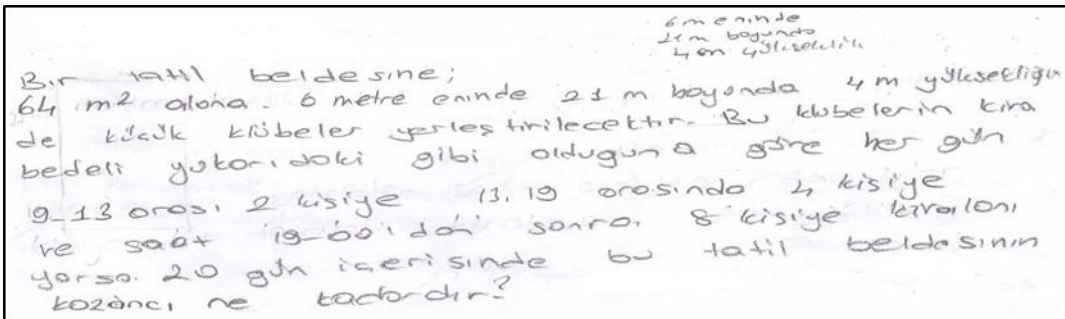 6 m eninde
21 m boyunda
4 m yükseklik
Bir tatil beldesine;
64 m² alana. 6 metre eninde 21 m boyunda 4 m yüksekliğin
de küçük klübeler yerleştirilecektir. Bu klubelerin kira
bedeli yukarıdaki gibi olduguna göre her gün
9-13 arası 2 kişiye 13.19 arasında 4 kişiye
ve saat 19-00'dan sonra. 8 kişiye kiralanı
yorsa. 20 gün içerisinde bu tatil beldesinin
kazancı ne kadardır?